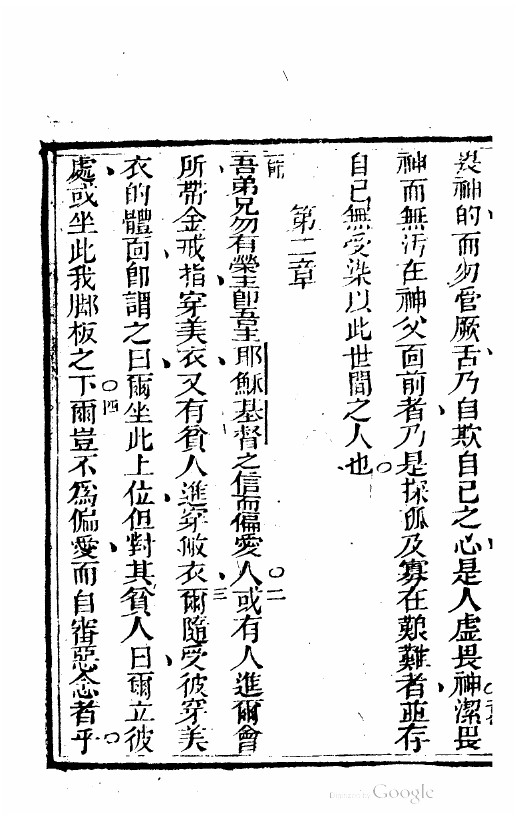 畏神的而勿管厥舌乃自欺自己之心是人虛畏神潔畏
神而無汚在神父面前者乃是探孤及寡在艱難者並存
自己無受染以此世間之人也
第二章
吾弟兄勿有榮主即吾主耶穌基督之信而偏愛人○二或有人進爾會
所帶金戒指穿美衣又有貧人進穿敝衣三爾隨受彼穿美
衣的體面即謂之曰爾坐此上位但對其貧人曰爾立彼
處或坐此我脚板之下○四爾豈不爲偏愛而自審惡念者乎
Digitized by Google